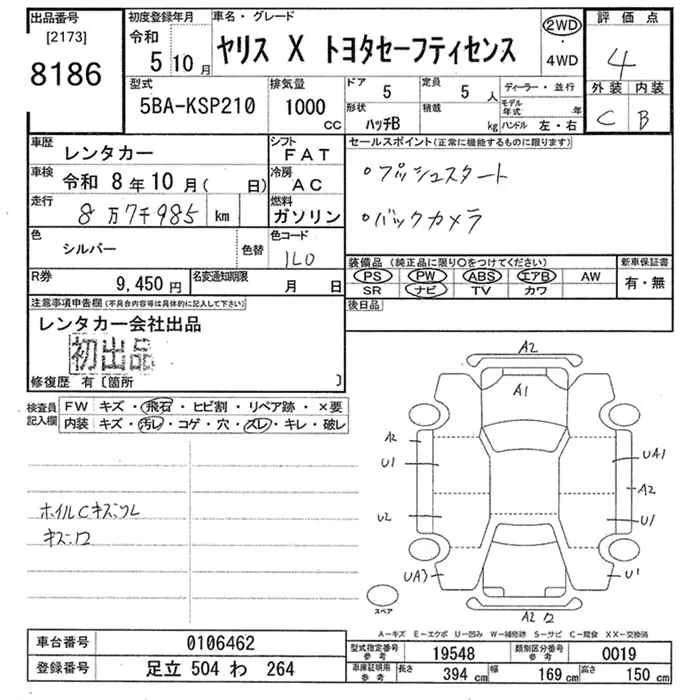 出品番号 初度登録年月 車名・グレード 2WD 評価点
[2173] 令和
8186 5 10月 ヤリス X トヨタセーフティセンス ・ 4WD 4
型式 排気量 ドア 5 定員 5 人 ディーラー・並行 外装 内装
5BA-KSP210 1000 cc 形状 ハッチB 積載 kg モデル年式 年 ハンドル 左・右 C B
車歴 レンタカー シフト FAT セールスポイント(正常に機能するものに限ります)
車検 令和 8年10月( 日) 冷房 AC ・プッシュスタート
走行 8万7千985 km 燃料 ガソリン ・バックカメラ
色 シルバー 色替 色コード 1L0
装備品(純正品に限り○をつけてください) 新車保証書
R券 9,450円 名変通知期限 月 日 PS PW ABS エアB AW 有・無
SR ナビ TV カワ
注意事項申告欄(不具合内容等は具体的に記入して下さい) 後日品
レンタカー会社出品
初出品
修復歴 有〔箇所 〕
検査員記入欄 FW キズ・飛石・ヒビ割・リペア跡・×要
内装 キズ・汚レ・コゲ・穴・ズレ・キレ・破レ
A2
A1
A2 UA1
U1
A2
U2 U1
ホイルCキズ
UA3 U1
スペア
A2
A－キズ E－エクボ U－凹み W－補修跡 S－サビ C－腐食 XX－交換済
車台番号 0106462
型式指定番号 参考 19548 類別区分番号 参考 0019
登録番号 足立 504 わ 264
車庫証明用 参考 長さ 394 cm 幅 169 cm 高さ 150 cm